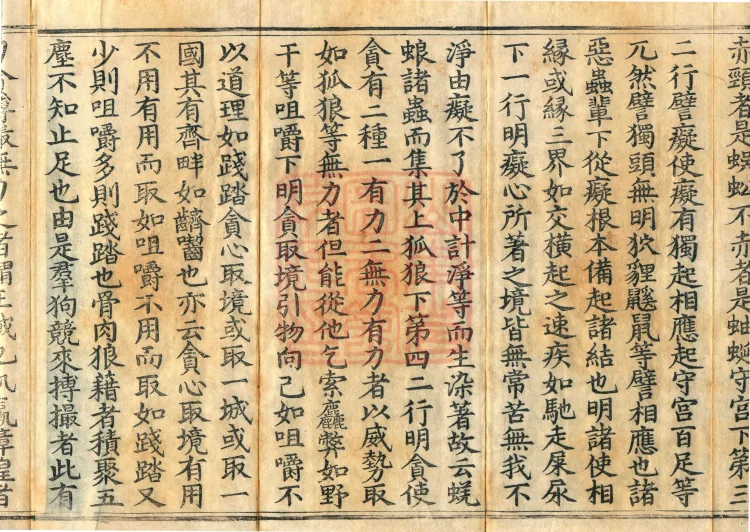 赤頸者是蜈蚣不赤者是蜘蜒守宮下第三
二行譬癡使癡有獨起相應起守宮百足等
兀然譬獨頭無明狖貍鼷鼠等譬相應也諸
惡蟲輩下從癡根本備起諸結也明諸使相
緣或緣三界如交橫起之速疾如馳走屎尿
下一行明癡心所著之境皆無常苦無我不
淨由癡不了於中計淨等而生染著故云蜣
蜋諸蟲而集其上狐狼下第四二行明貪使
貪有二種一有力二無力有力者以威勢取
如狐狼等無力者但能從他乞索麤弊如野
干等咀嚼下明貪取境引物向己如咀嚼不
以道理如踐踏貪心取境或取一城或取一
國其有齊畔如嚌齧也亦云貪心取境有用
不用有用而取如咀嚼不用而取如踐踏又
少則咀嚼多則踐踏也骨肉狼藉者積聚五
塵不知止足也由是羣狗競來搏撮者此有